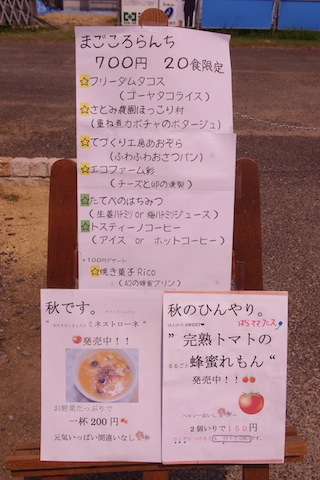 まごころらんち
700円 20食限定
☆フリーダムタコス
(ゴーヤタコライス)
☆さとみ農園ほっこり村
(重ね煮カボチャのポタージュ)
☆てづくり工房あおぞら
(ふわふわおさつパン)
☆エコファーム彩
(チーズと卵の燻製)
☆たてべのはちみつ
(生姜ハチミツ or 梅ハチミツジュース)
☆トスティーノコーヒー
(アイス or ホットコーヒー)
+100円デザート
☆焼き菓子Rico
(幻の蜂蜜プリン)
秋です。
ミネストローネ
発売中!!
お野菜たっぷりで
一杯200円
元気いっぱい間違いなし
秋のひんやり。
ぱらママフェス
”完熟トマトの
まるごと 蜂蜜れもん“
発売中!!
ヘルシーおいし
2個いりで150円